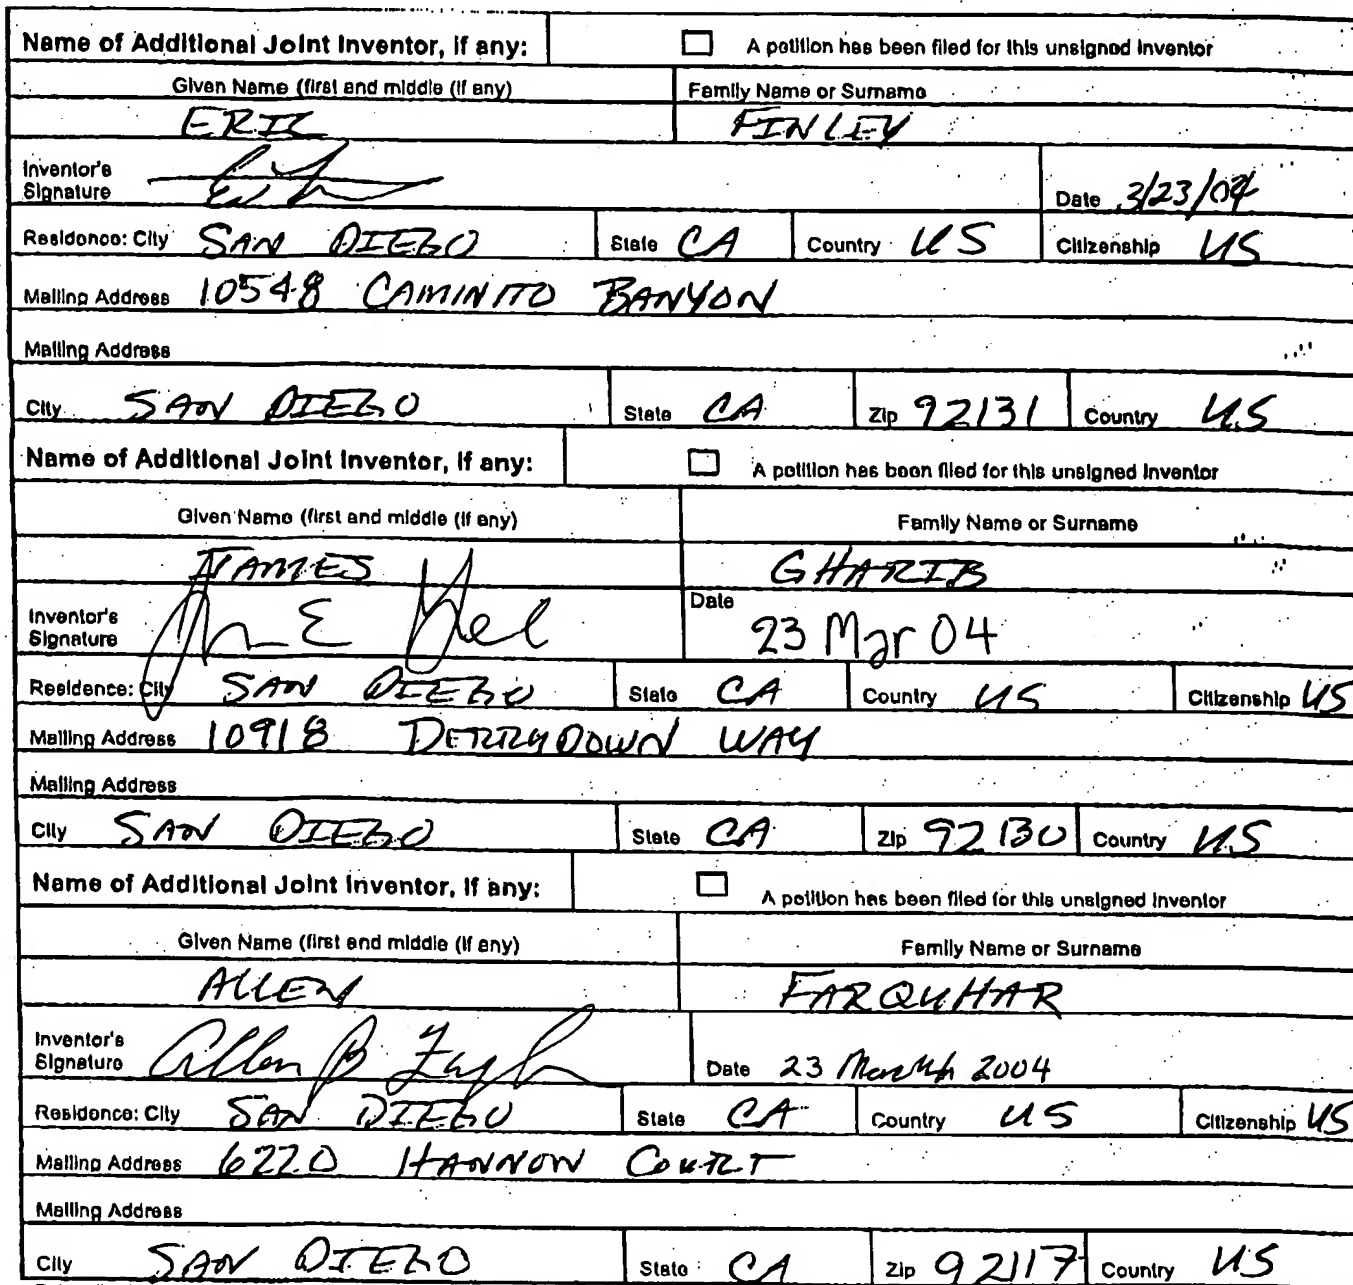 Name of Additional Joint Inventor, if any: A petition has been filed for this unsigned inventor
Given Name (first and middle (if any) Family Name or Surname
ERIC FINLEY
Inventor's
Signature Date 3/23/04
Residence: City SAN DIEGO State CA Country US Citizenship US
Mailing Address 10548 CAMINITO BANYON
Mailing Address
City SAN DIEGO State CA Zip 92131 Country US
Name of Additional Joint Inventor, if any: A petition has been filed for this unsigned inventor
Given Name (first and middle (if any) Family Name or Surname
JAMES GHARIB
Inventor's
Signature Date 23 Mar 04
Residence: City SAN DIEGO State CA Country US Citizenship US
Mailing Address 10918 DERRYDOWN WAY
Mailing Address
City SAN DIEGO State CA Zip 92130 Country US
Name of Additional Joint Inventor, if any: A petition has been filed for this unsigned inventor
Given Name (first and middle (if any) Family Name or Surname
ALLEN FARQUHAR
Inventor's
Signature Allen B Date 23 March 2004
Residence: City SAN DIEGO State CA Country US Citizenship US
Mailing Address 6220 HANNON COURT
Mailing Address
City SAN DIEGO State CA Zip 92117 Country US